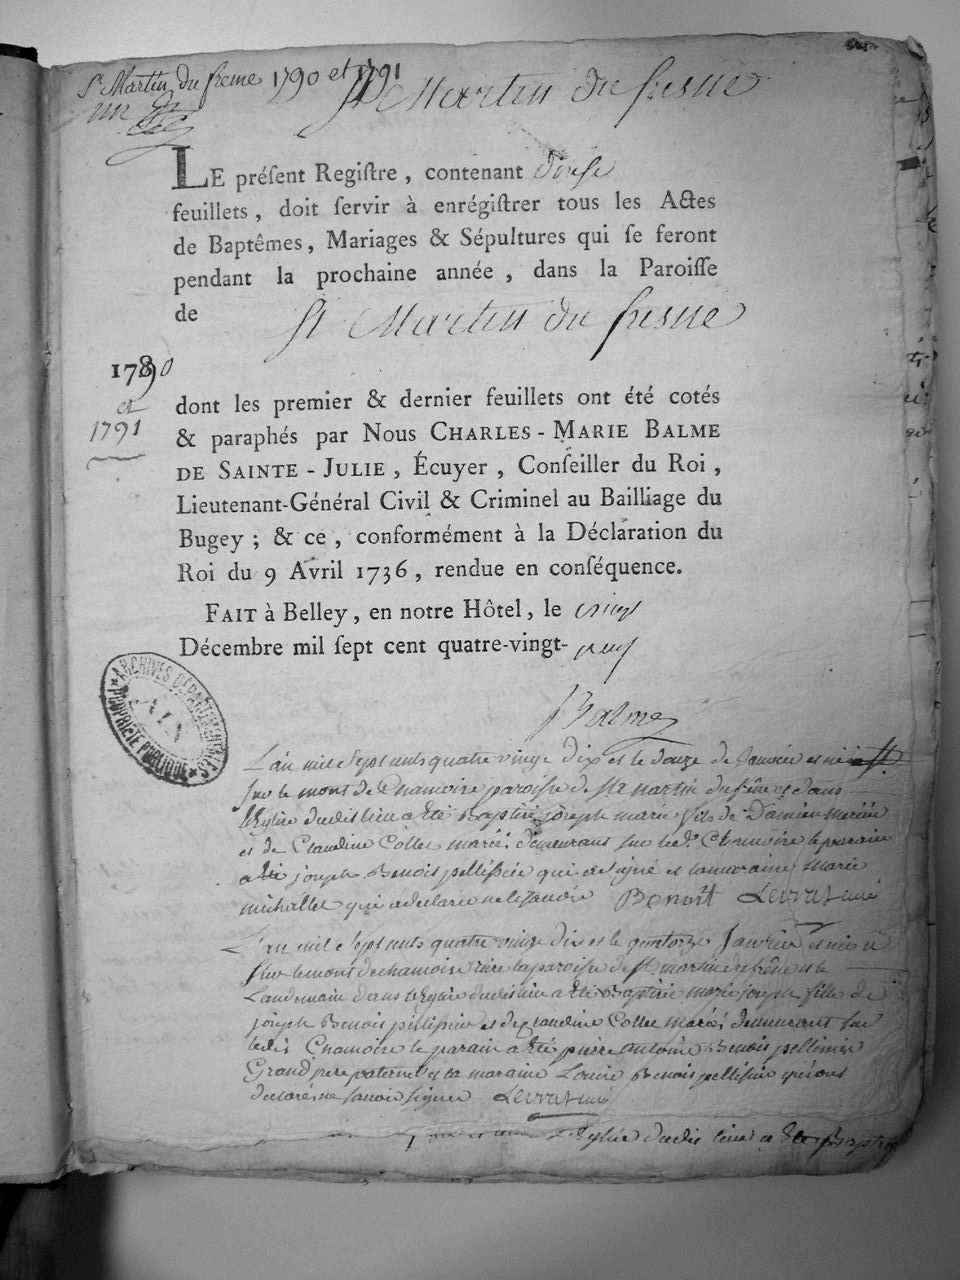 St Martin du fresne 1790 et 1791
St Martin du fresne
LE préſent Regiſtre, contenant douſe
feuillets, doit ſervir à enrégiſtrer tous les Actes
de Baptêmes, Mariages & Sépultures qui ſe feront
pendant la prochaine année, dans la Paroiſſe
de St Martin du fresne
1790
et
1791
dont les premier & dernier feuillets ont été cotés
& paraphés par Nous CHARLES-MARIE BALME
DE SAINTE-JULIE, Écuyer, Conſeiller du Roi,
Lieutenant-Général Civil & Criminel au Bailliage du
Bugey; & ce, conformément à la Déclaration du
Roi du 9 Avril 1736, rendue en conſéquence.
FAIT à Belley, en notre Hôtel, le vingt
Décembre mil ſept cent quatre-vingt-neuf
Balme
ARCHIVES DÉPARTEMENTALES
AIN
PROPRIÉTÉ PUBLIQUE
L'an mil sept cents quatre vingt dix et le douze de Janvier est né
sur le mont de Chamoire paroisse de St martin du frêne et dans
l'Eglise dudit lieu a Eté Baptisé joseph marie fils de Damien
et de Claudine Collet mariés demeurant sur le dt Chamoire le parain
a Eté joseph Benoit pellissié qui a signé et la maraine marie
michallet qui a declaré ne le savoir Benoît Levrat curé
L'an mil sept cents quatre vingt dix et le quatorze Janvier est né
sur le mont de chamoire rière la paroisse de St martin du frêne et le
Landemain dans l'Eglise dudit lieu a Eté Baptisée marie joseph fille de
joseph Benoit pellissié et de Claudine Collet mariés demeurant sur
ledit Chamoire le parain a Eté pierre antoine Benoit pellissié
Grand pere paternel et la maraine Louise Benoit pellissié qui ont
declaré ne savoir signer Levrat curé
l'Eglise dudit lieu a Eté Baptisé